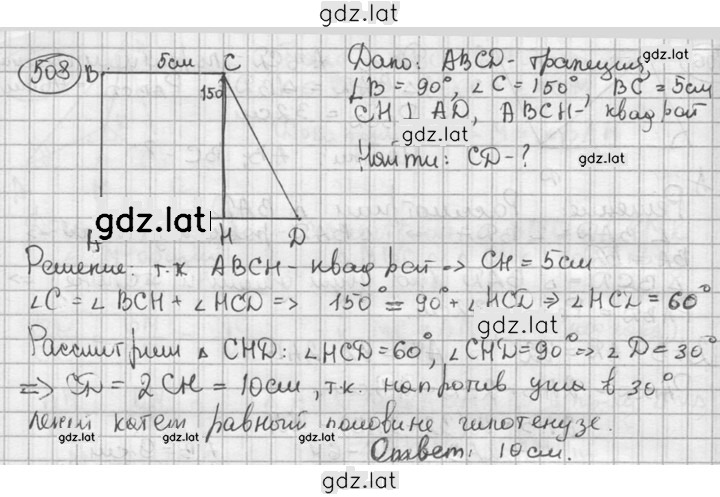 gdz.lat
508
B 5см C
150
gdz.lat
A H D
Дано: ABCD - трапеция,
gdz.lat
∠B = 90°, ∠C = 150°, BC = 5см
CH ⊥ AD, ABCH - квадрат
gdz.lat
Найти: CD - ?
gdz.lat
Решение: т.к ABCH - квадрат => CH = 5см
∠C = ∠BCH + ∠HCD => 150° = 90° + ∠HCD => ∠HCD = 60°
gdz.lat
Рассмотрим △ CHD: ∠HCD = 60°, ∠CHD = 90° => ∠D = 30°
=> CD = 2CH = 10см, т.к. напротив угла в 30°
лежит катет равный половине гипотенузе.
gdz.lat gdz.lat gdz.lat
Ответ: 10см.
gdz.lat